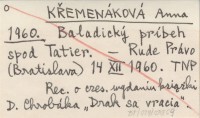 KŘEMENÁKOVÁ Anna
1960. Baladický príbeh
spod Tatier. — Rudé Právo
(Bratislava) 14 XII 1960. TNP
Rec. o čes. vydaniu
D. Chrobáka „Drak sa vracia".